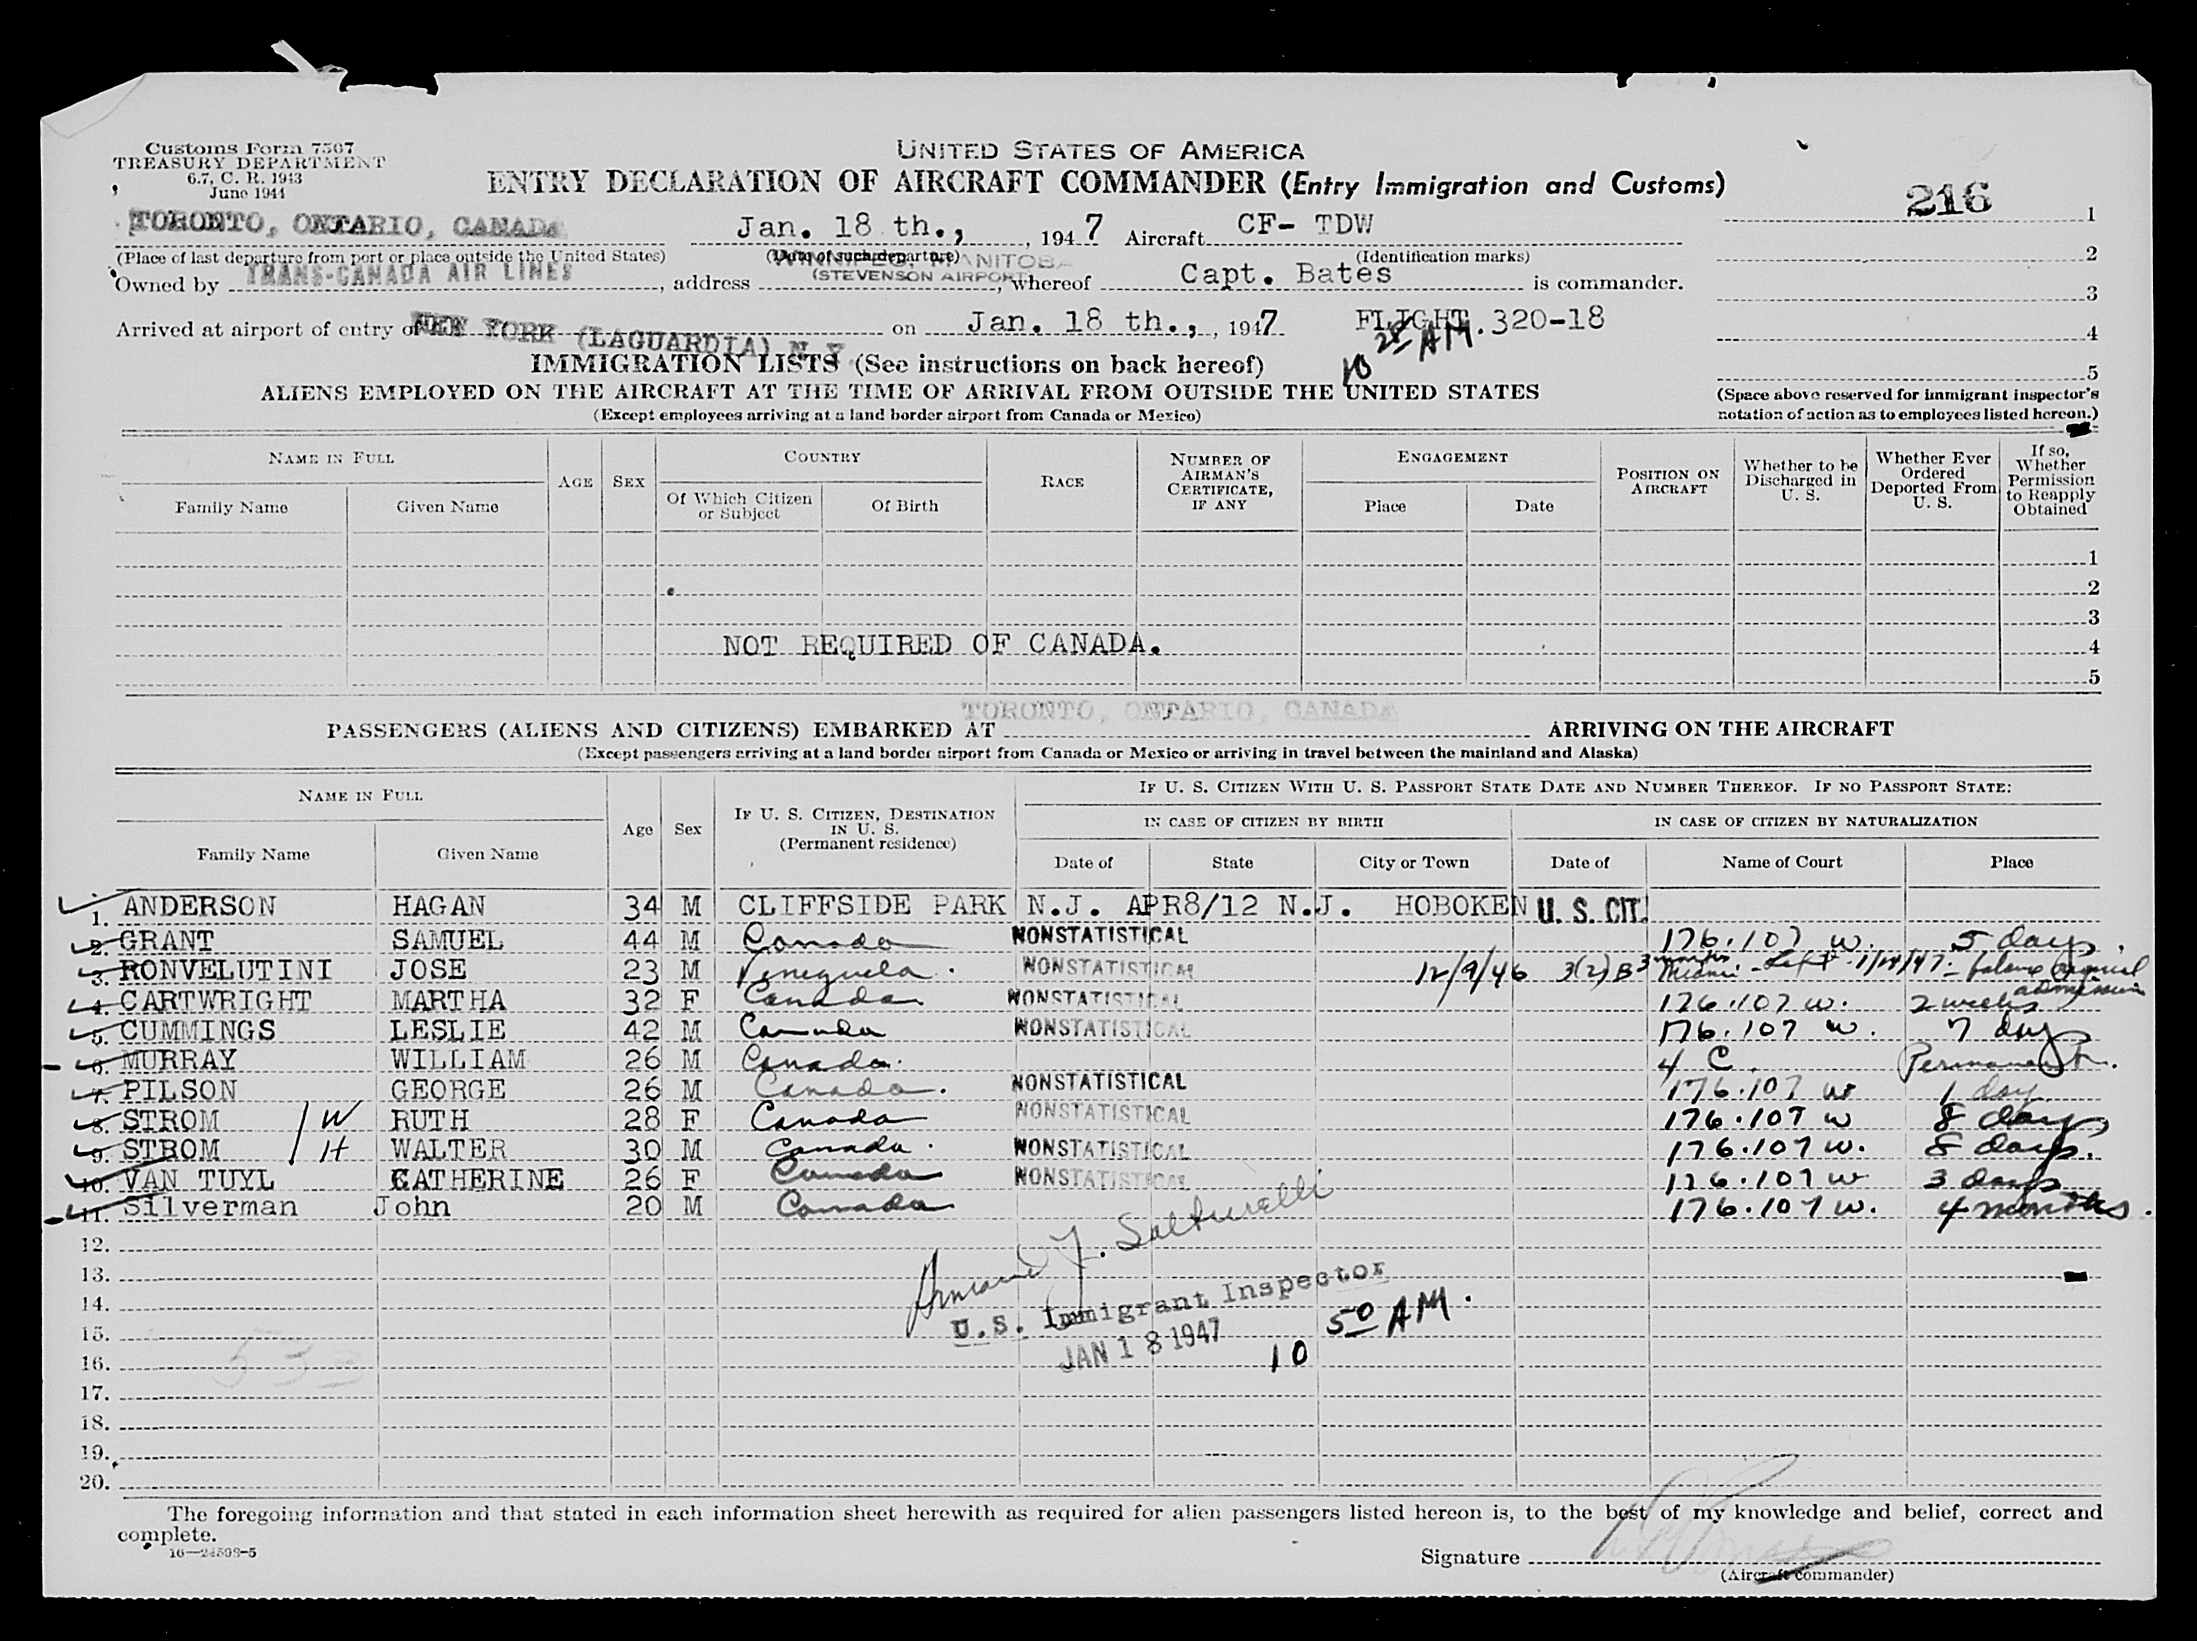 Customs Form 7507
TREASURY DEPARTMENT
6.7, C. R. 1943
June 1944
UNITED STATES OF AMERICA
ENTRY DECLARATION OF AIRCRAFT COMMANDER (Entry Immigration and Customs)
216 1
TORONTO, ONTARIO, CANADA Jan. 18 th., , 1947 Aircraft CF- TDW
(Place of last departure from port or place outside the United States) (Date of such departure) (Identification marks) 2
WINNIPEG, MANITOBA
(STEVENSON AIRPORT)
Owned by TRANS-CANADA AIR LINES , address , whereof Capt. Bates is commander. 3
Arrived at airport of entry of NEW YORK (LAGUARDIA) N.Y. on Jan. 18 th., , 1947 FLIGHT. 320-18 4
10 28 AM
IMMIGRATION LISTS (See instructions on back hereof) 5
ALIENS EMPLOYED ON THE AIRCRAFT AT THE TIME OF ARRIVAL FROM OUTSIDE THE UNITED STATES
(Except employees arriving at a land border airport from Canada or Mexico)
(Space above reserved for immigrant inspector's
notation of action as to employees listed hereon.)
NAME IN FULL
Family Name Given Name
AGE SEX
COUNTRY
Of Which Citizen or Subject Of Birth
RACE
NUMBER OF AIRMAN'S CERTIFICATE, IF ANY
ENGAGEMENT
Place Date
POSITION ON AIRCRAFT
Whether to be Discharged in U. S.
Whether Ever Ordered Deported From U. S.
If so, Whether Permission to Reapply Obtained
1
2
3
NOT REQUIRED OF CANADA. 4
5
TORONTO, ONTARIO, CANADA
PASSENGERS (ALIENS AND CITIZENS) EMBARKED AT ARRIVING ON THE AIRCRAFT
(Except passengers arriving at a land border airport from Canada or Mexico or arriving in travel between the mainland and Alaska)
NAME IN FULL
Family Name Given Name
Age Sex
IF U. S. CITIZEN, DESTINATION IN U. S.
(Permanent residence)
IF U. S. CITIZEN WITH U. S. PASSPORT STATE DATE AND NUMBER THEREOF. IF NO PASSPORT STATE:
IN CASE OF CITIZEN BY BIRTH IN CASE OF CITIZEN BY NATURALIZATION
Date of State City or Town Date of Name of Court Place
1. ANDERSON HAGAN 34 M CLIFFSIDE PARK N.J. APR8/12 N.J. HOBOKEN U. S. CIT.
2. GRANT SAMUEL 44 M Canada NONSTATISTICAL 176.107 W. 5 days.
3. RONVELUTINI JOSE 23 M Venezuela. NONSTATISTICAL 12/9/46 3(2)B 3 months Miami - Left balance original admission
4. CARTWRIGHT MARTHA 32 F Canada NONSTATISTICAL 176.107 W. 2 weeks
5. CUMMINGS LESLIE 42 M Canada NONSTATISTICAL 176.107 W. 7 days
6. MURRAY WILLIAM 26 M Canada. 4 C. Permanent
7. PILSON GEORGE 26 M Canada. NONSTATISTICAL 176.107 W 1 day
8. STROM W RUTH 28 F Canada NONSTATISTICAL 176.107 W 8 days
9. STROM H WALTER 30 M Canada. NONSTATISTICAL 176.107 W. 8 days.
10. VAN TUYL CATHERINE 26 F Canada NONSTATISTICAL 176.107 W 3 days
11. Silverman John 20 M Canada 176.107 W. 4 months.
12.
13.
14.
U.S. Immigrant Inspector
15.
JAN 18 1947 10 50 AM.
16.
17.
18.
19.
20.
The foregoing information and that stated in each information sheet herewith as required for alien passengers listed hereon is, to the best of my knowledge and belief, correct and
complete.
16—24598-5
Signature
(Aircraft commander)